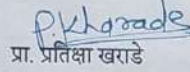 P. Kharade
प्रा. प्रतिक्षा खराडे